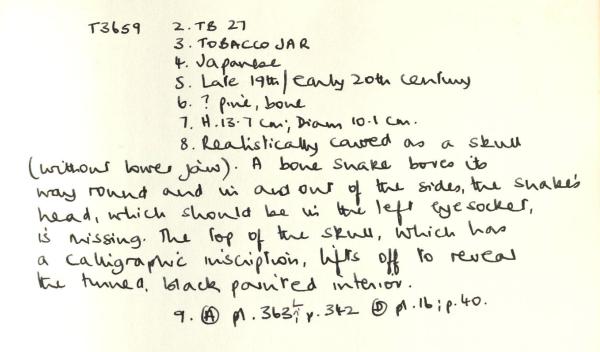 T3659 2. TB 27
3. TOBACCO JAR
4. Japanese
5. Late 19th/early 20th century
6. ? pine, bone
7. H.13.7 cm; Diam 10.1 cm.
8. Realistically carved as a skull
(without lower jaw). A bone snake bores its
way round and in and out of the sides, the snake's
head, which should be in the left eyesocket,
is missing. The top of the skull, which has
a calligraphic inscription, lifts off to reveal
the turned, black painted interior.
9. Ⓐ pl. 363 L; p. 342 Ⓓ pl. 16; p. 40.